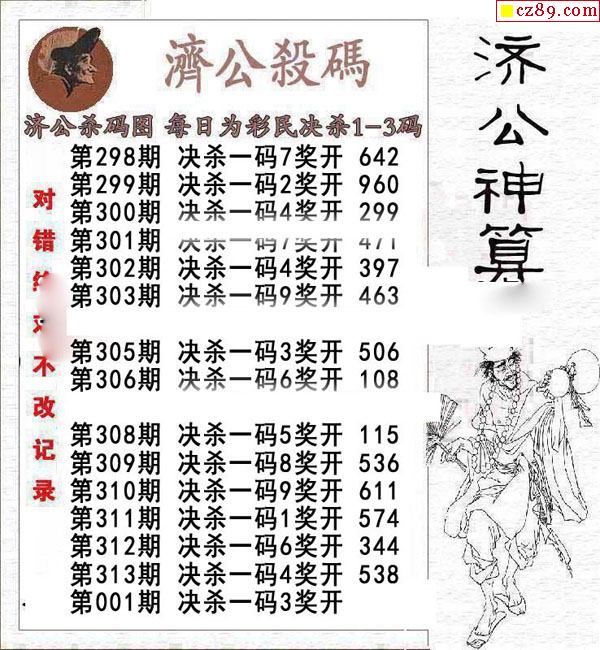 cz89.com
濟公殺碼
济公杀码图 每日为彩民决杀1-3码
第298期 决杀一码7奖开 642
第299期 决杀一码2奖开 960
第300期 决杀一码4奖开 299
第301期 决杀一码7奖开 471
第302期 决杀一码4奖开 397
第303期 决杀一码9奖开 463
第305期 决杀一码3奖开 506
第306期 决杀一码6奖开 108
第308期 决杀一码5奖开 115
第309期 决杀一码8奖开 536
第310期 决杀一码9奖开 611
第311期 决杀一码1奖开 574
第312期 决杀一码6奖开 344
第313期 决杀一码4奖开 538
第001期 决杀一码3奖开
对错不改记录
济公神算